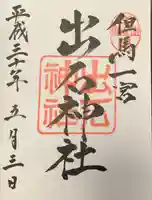 但馬一宮
出石神社
出石
神社
平成三十年五月三日